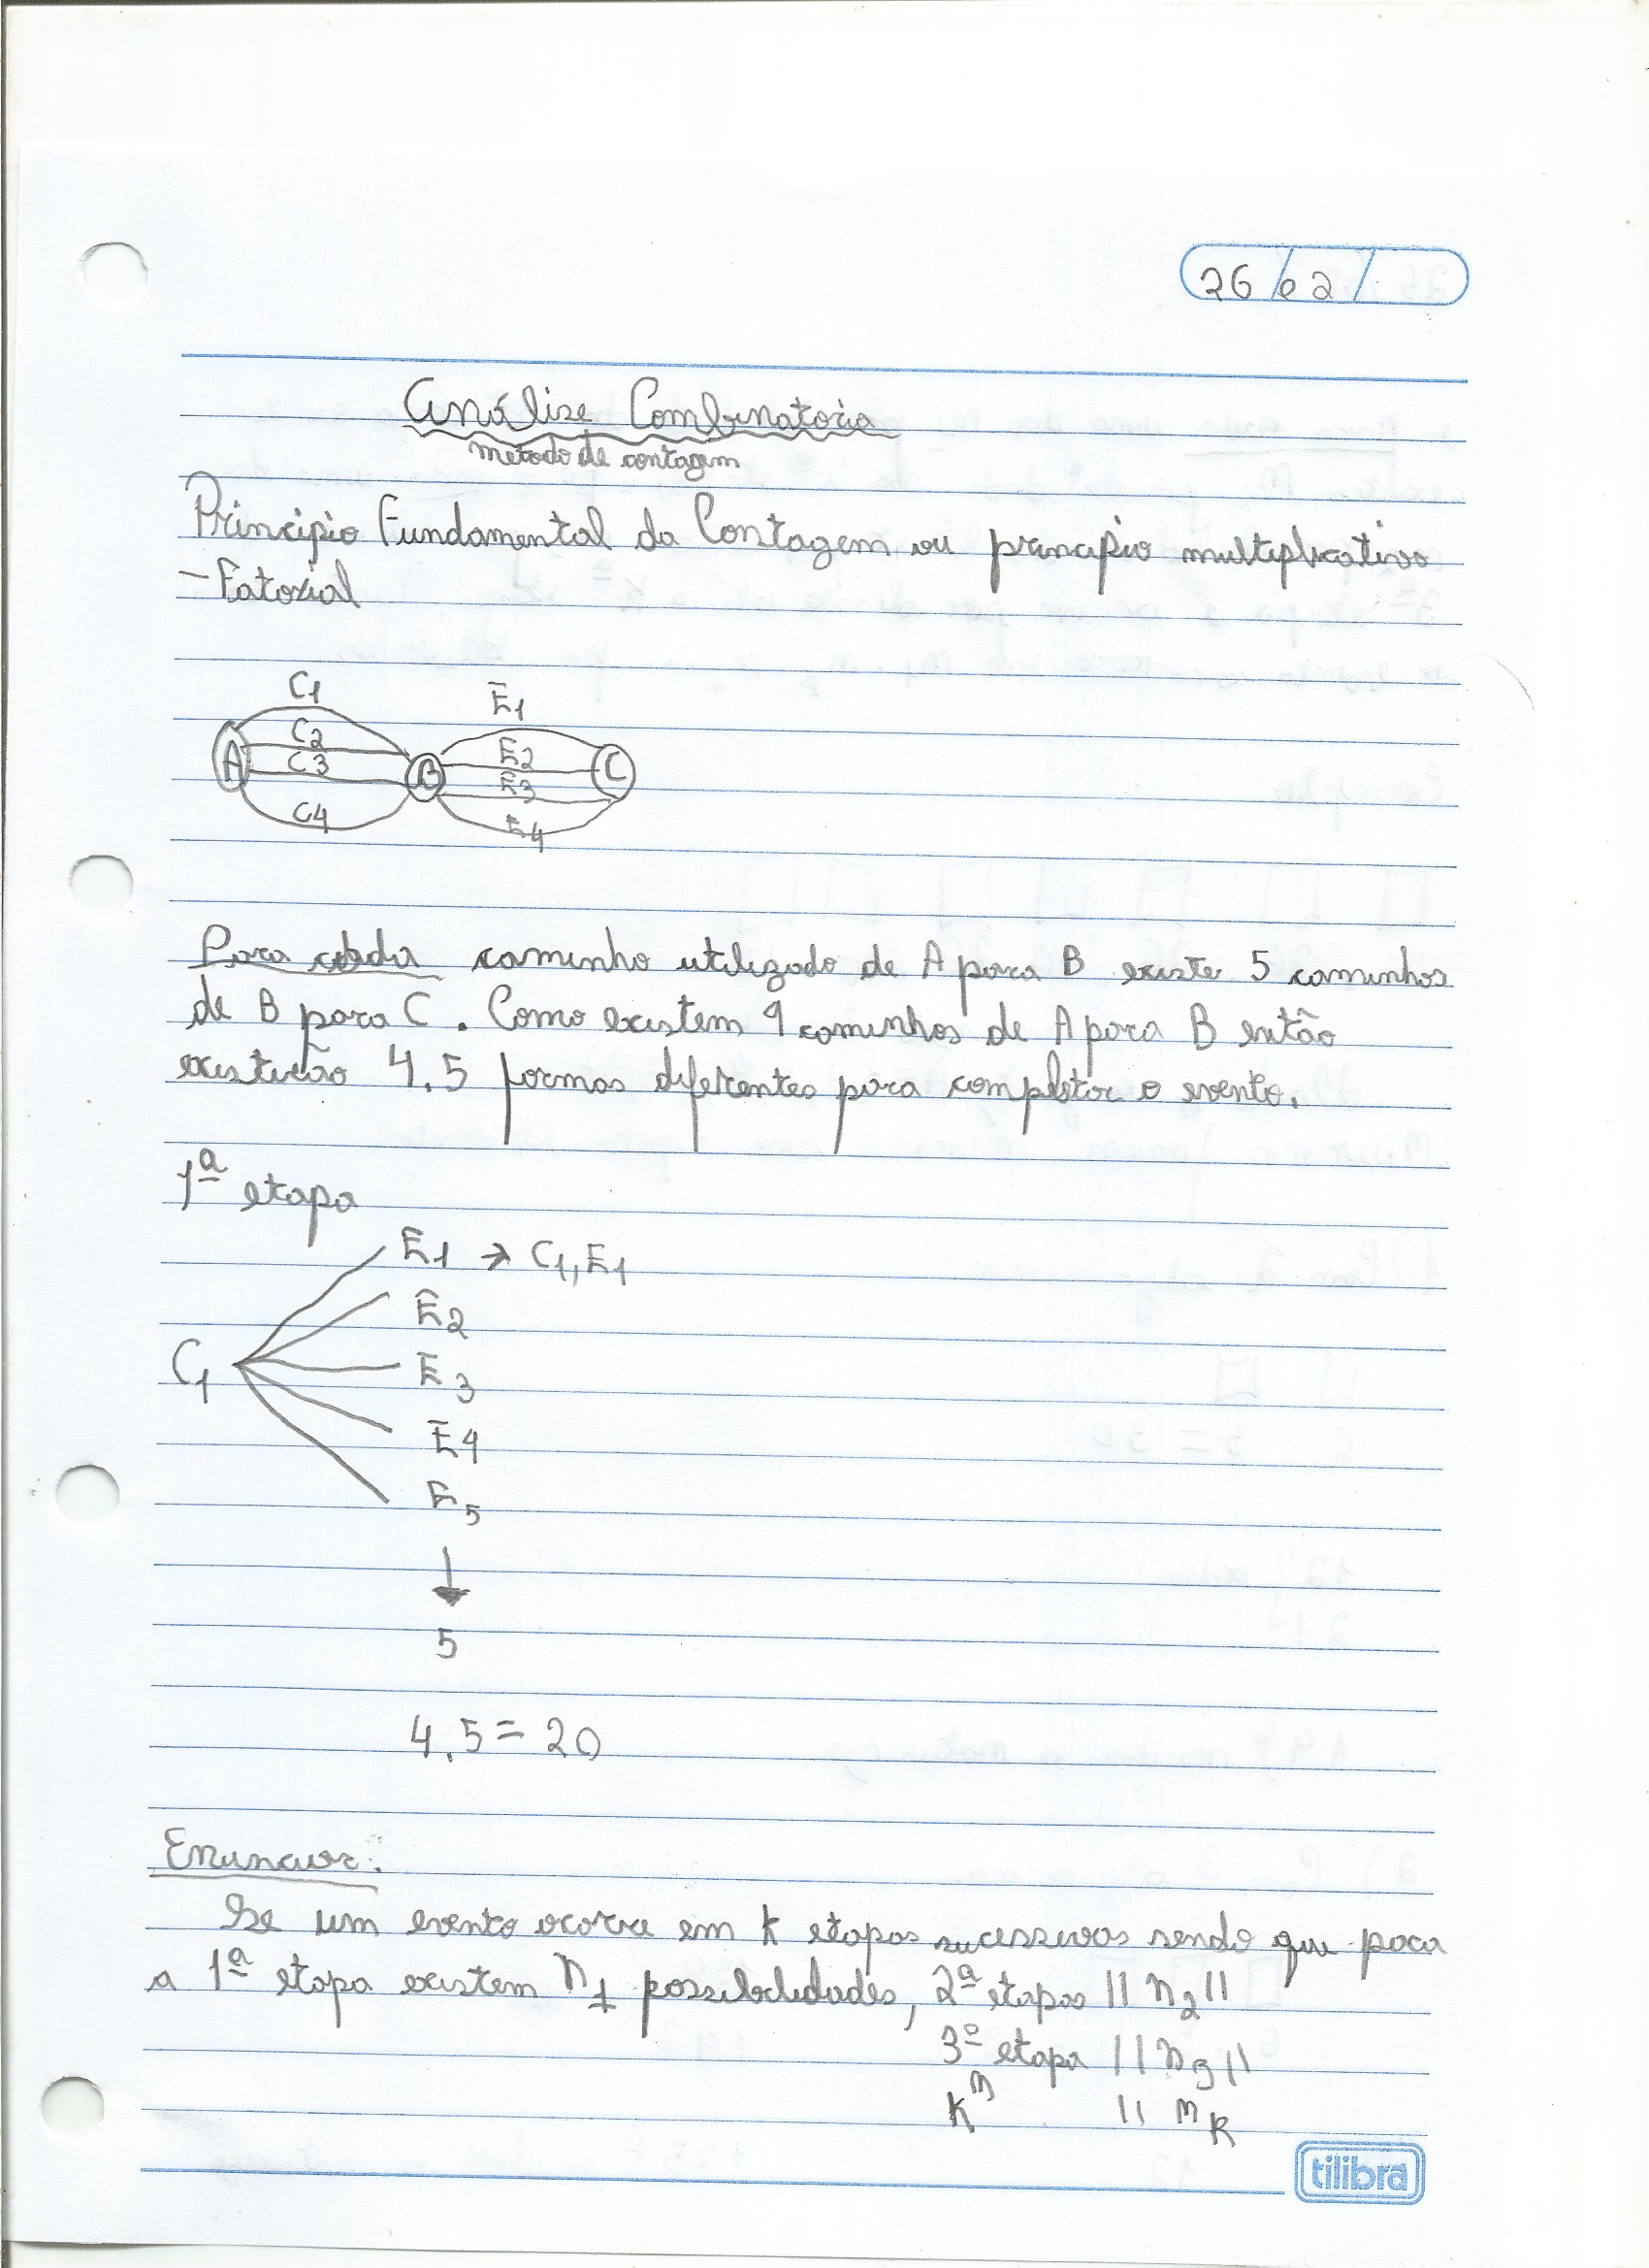 26/02/
Análise Combinatoria
metodo de contagem
Principio Fundamental da Contagem ou principio multiplicativo
- Fatorial
C1
E1
C2
E2
A
C3
B
E3
C
C4
E4
Para cada caminho utilizado de A para B existe 5 caminhos
de B para C. Como existem 4 caminhos de A para B então
existirão 4.5 formas diferentes para completar o evento.
1ª etapa
E1 → C1, E1
E2
C1
E3
E4
E5
↓
5
4.5 = 20
:
Se um evento ocorre em k etapas sucessivas sendo que para
a 1ª etapa existem n1 possibilidades, 2ª etapas || n2 ||
3º etapa || n3 ||
k || nk
tilibra